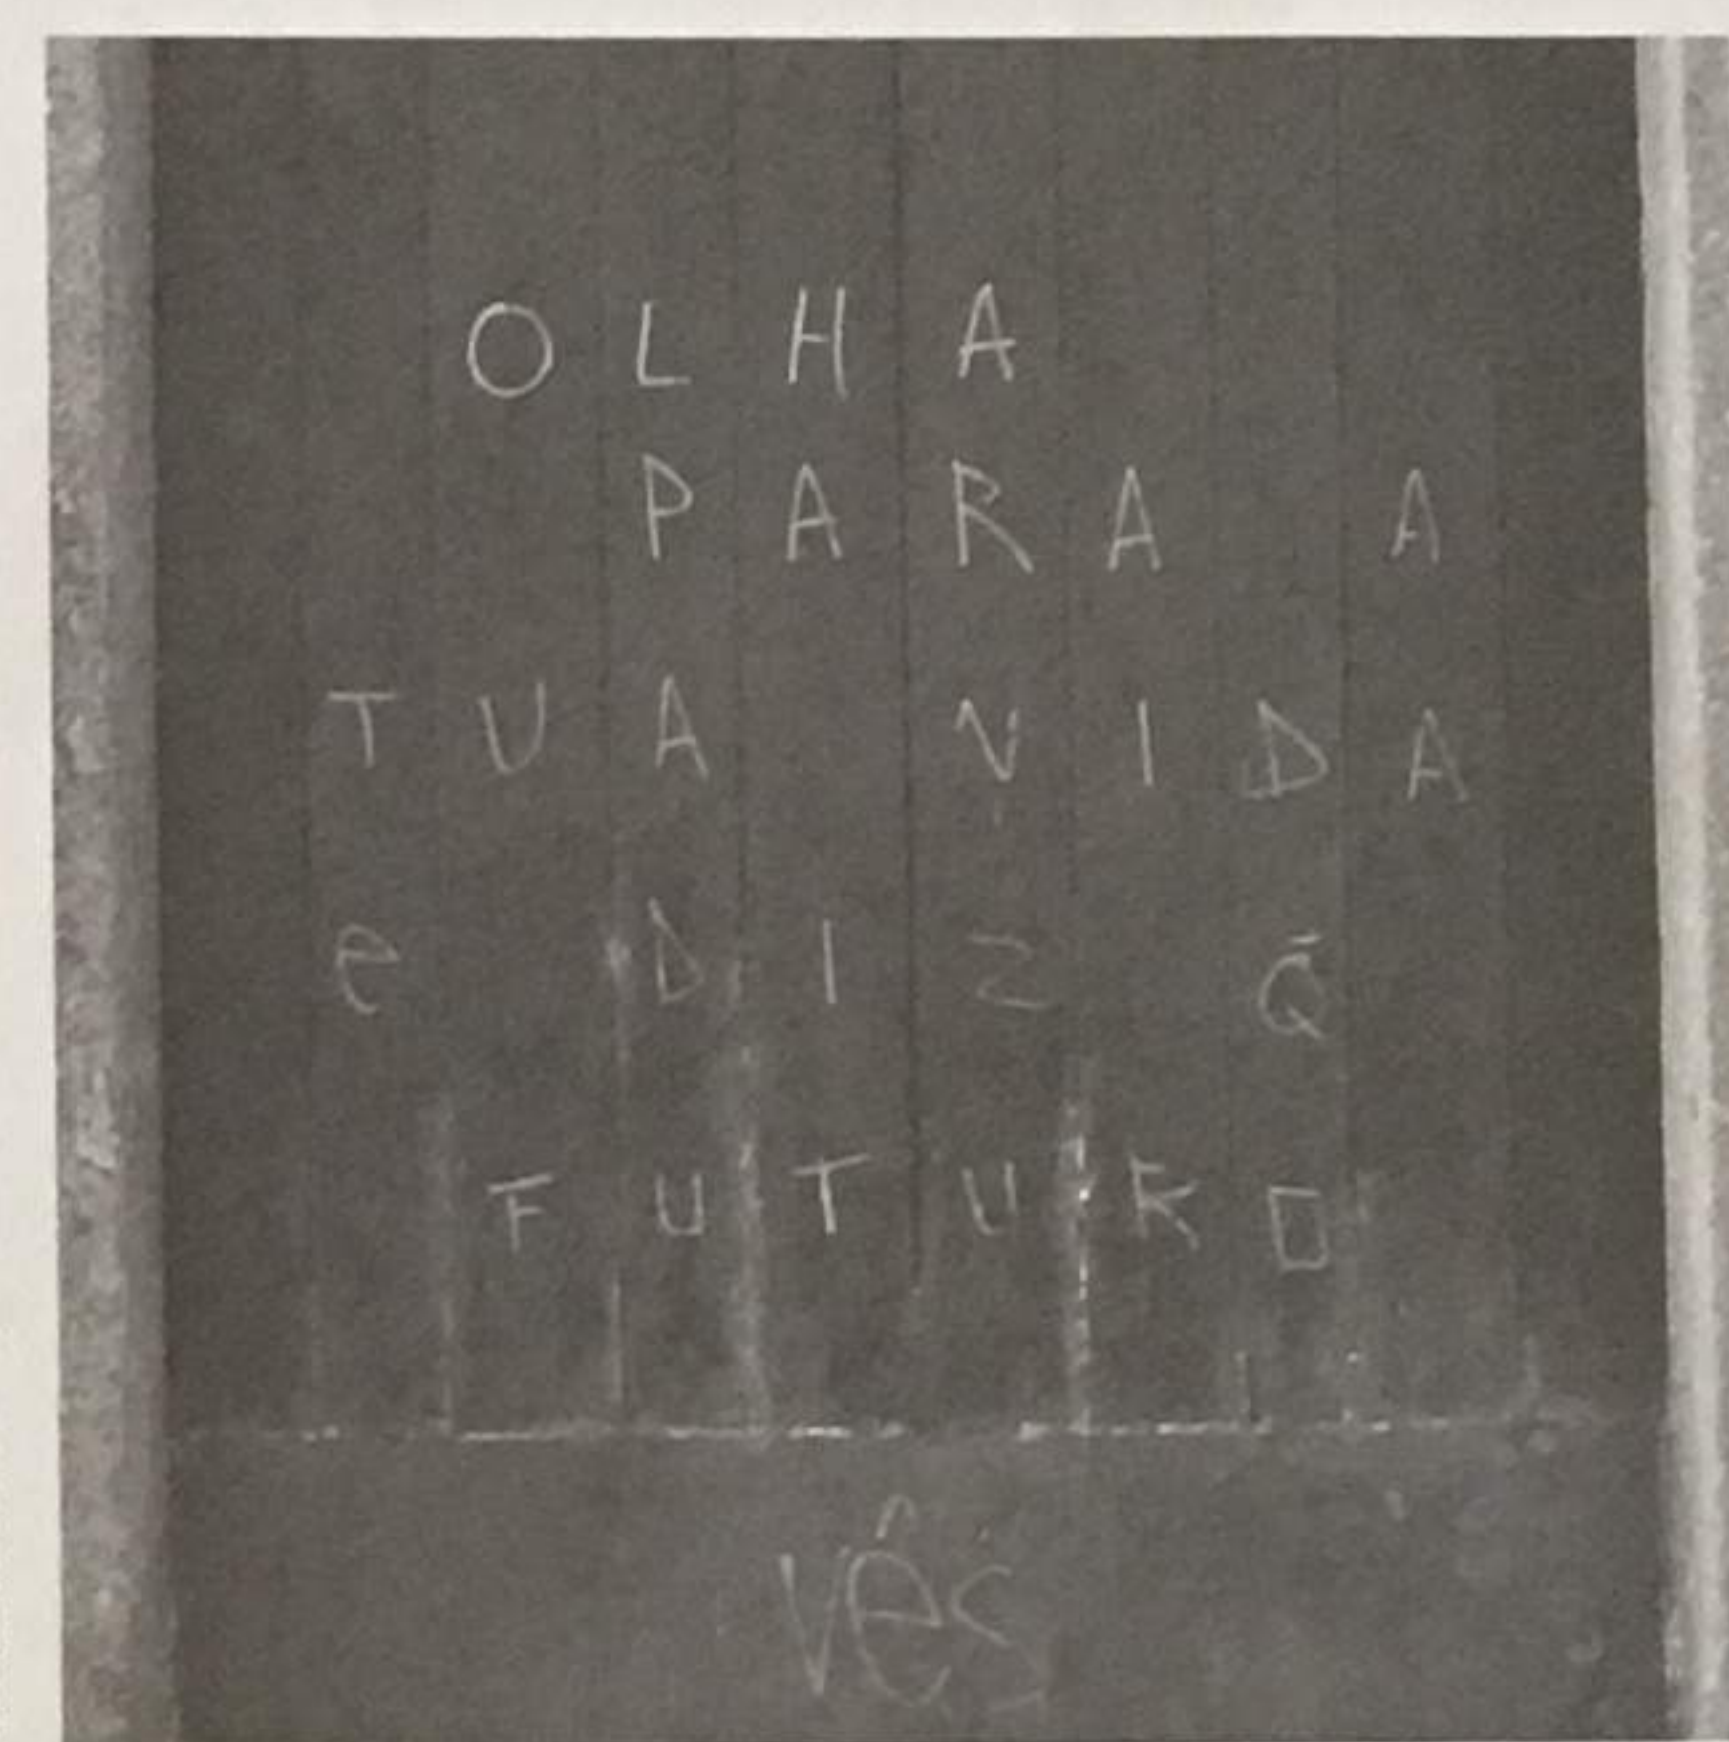 OLHA
PARA A
TUA VIDA
e DIZ Q̄
FUTURO
vês